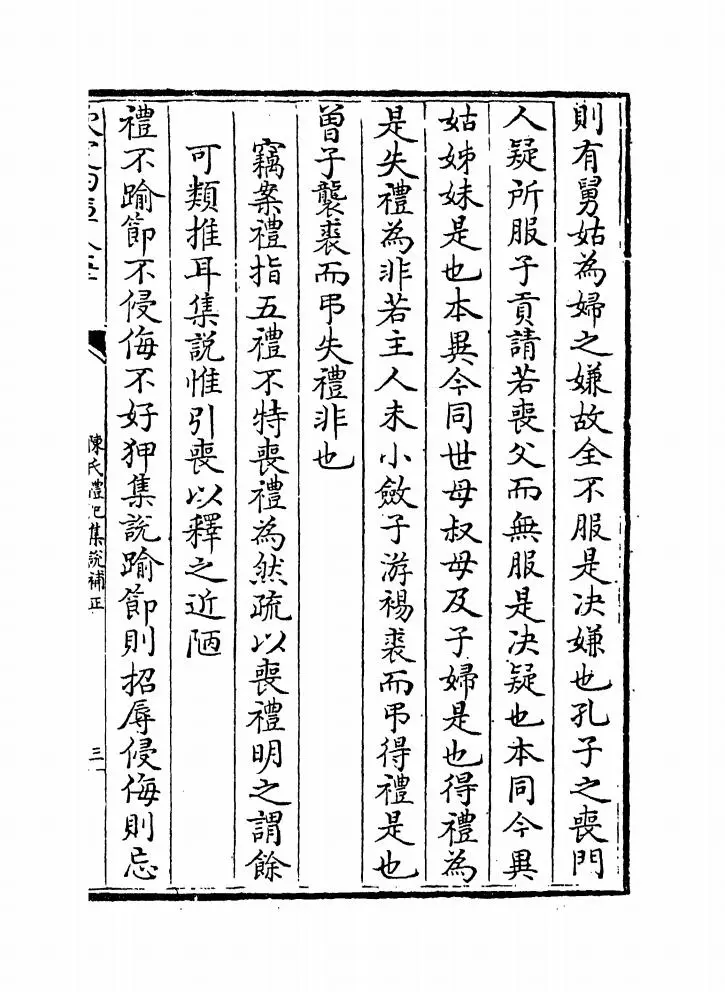 則有舅姑為婦之嫌故全不服是决嫌也孔子之喪門
人疑所服子貢請若喪父而無服是决疑也本同今異
姑姊妹是也本異今同世母叔母及子婦是也得禮為
是失禮為非若主人未小斂子游裼裘而弔得禮是也
曾子襲裘而弔失禮非也
竊案禮指五禮不特喪禮為然疏以喪禮明之謂餘
可類推耳集説惟引喪以釋之近陋
禮不踰節不侵侮不好狎集説踰節則招辱侵侮則忘
陳氏禮記集說補正
三